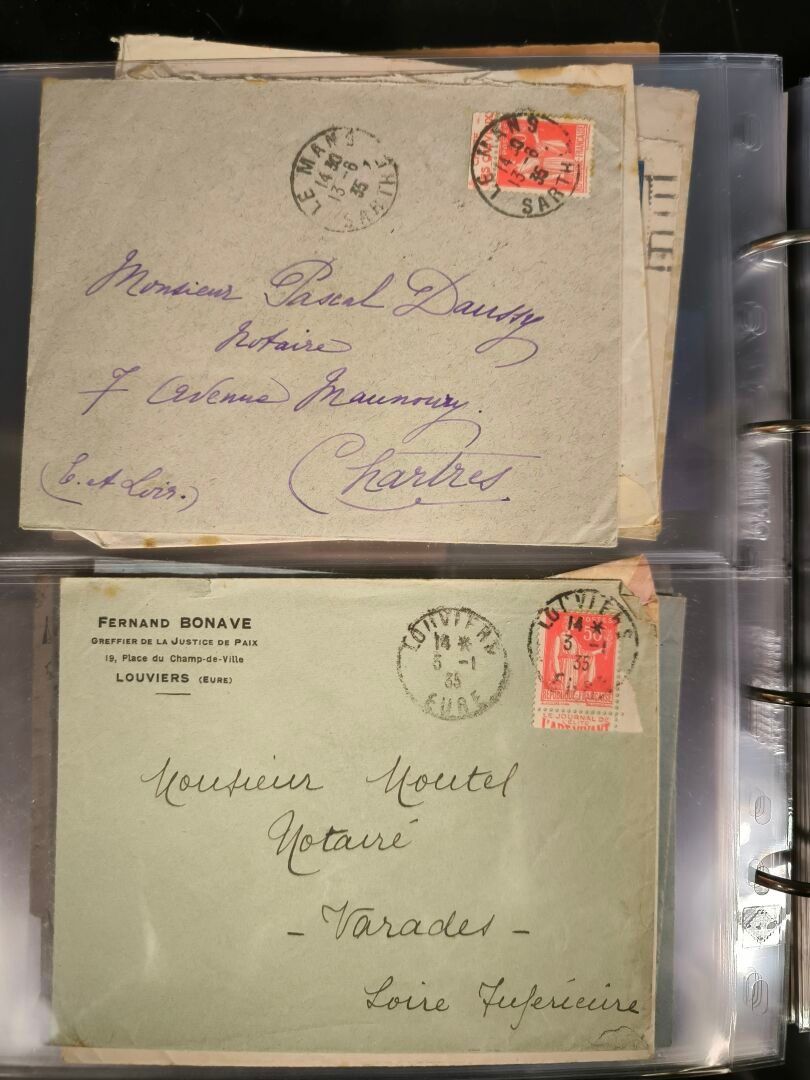 LE MANS
14 30
13 - 6
35
SARTHE
LE MANS
14 30
13 - 6
35
SARTHE
Monsieur Pascal Daussy
Notaire
7 Avenue Maunoury.
Chartres
(E. et Loir.)
FERNAND BONAVE
GREFFIER DE LA JUSTICE DE PAIX
19, Place du Champ-de-Ville
LOUVIERS (EURE)
LOUVIERS
14 *
3 -1
35
EURE
LOUVIERS
14 *
3 -1
35
POSTES
50c
REPUBLIQUE FRANÇAISE
LE JOURNAL DE
L'ART VIVANT
Monsieur Montel
Notairé
- Varades -
Loire Inferieure